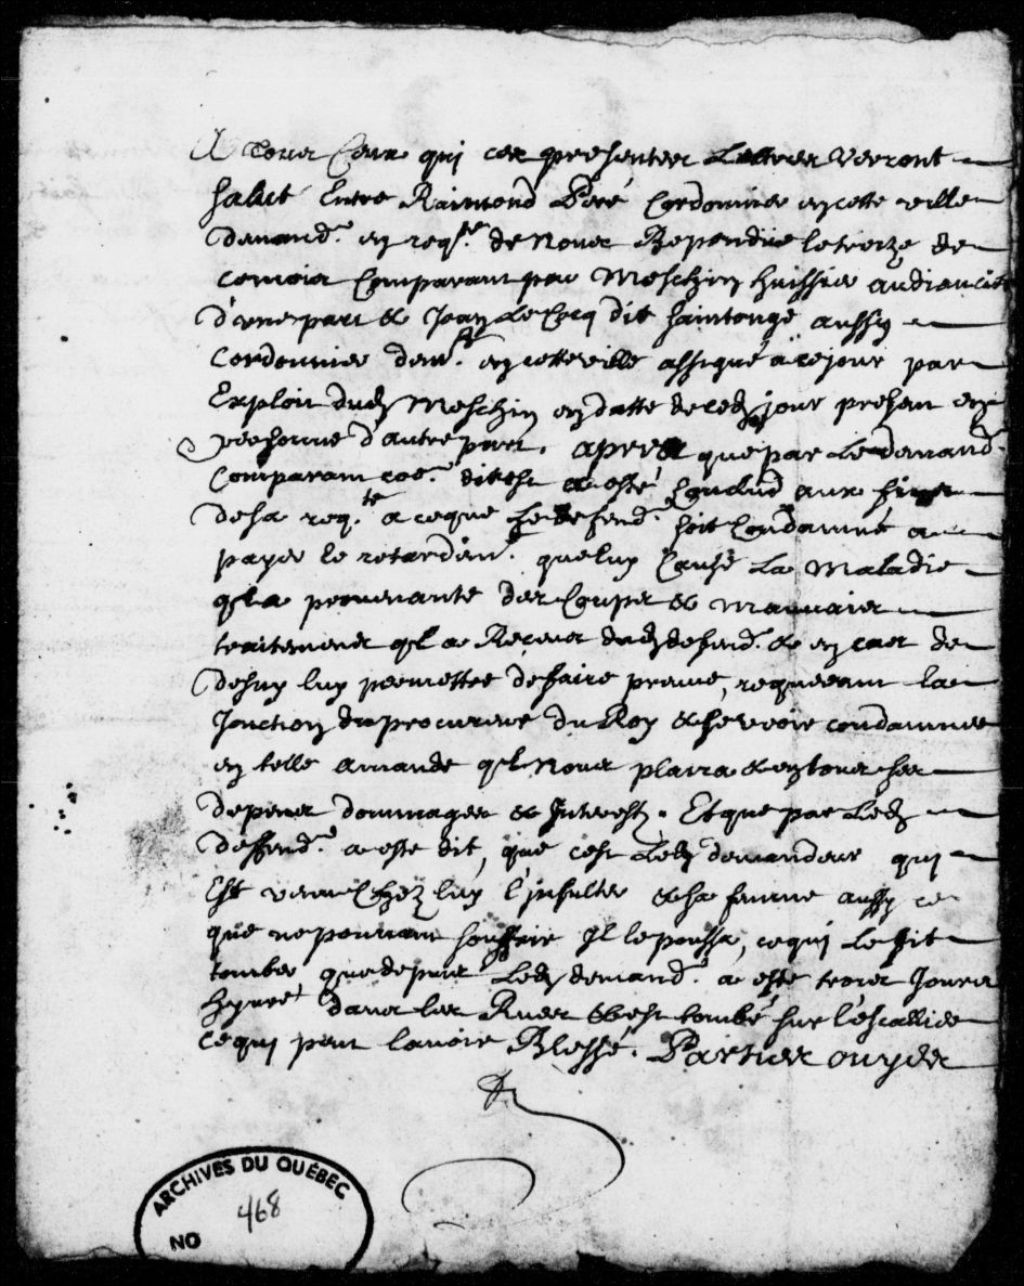 A Tous Ceux qui ces presentes Lettres Verront
Salut Entre Raimond Peré Cordonnier en cette ville
demand.r en reqte. de Nous Repondue le treize de
ce mois Comparant par Meschin huissier audiancier
d'une part & Jean Le Cocq dit saintonge aussy
Cordonnier dem.t en cette ville assigné à ce jour par
Exploit dud. Meschin en datte de ced. jour present en
personne d'autre part. apres que par Le demand.r
Comparant co.e dit est a esté Conclud aux fins
de sa req.te a ce que Le defend.r soit Condamné a
payer le retardem.t que luy Cause La Maladie
ql a provenante des Coups & Mauvais
traitemens ql a Receus dud. defend.r & en cas de
desny luy permettre de faire preuve, requerant la
Jonction du procureur du Roy & se veoir condamner
en telle amande ql Nous plaira & en tous ses
depens dommages & Interests. Et que par Led.
deffend.r a esté dit, que c'est Led. demandeur qui
Est venu Chez luy l'insulter & sa femme aussy ce
que ne pouvant souffrir Il le poussa, ce qui Le fit
tomber que depuis Led. demand.r a esté trois Jours
hyvre dans les Rues & est tombé sur l'escallier
ce qui peut l'avoir Blessé. Parties ouyes
ARCHIVES DU QUÉBEC
468
NO